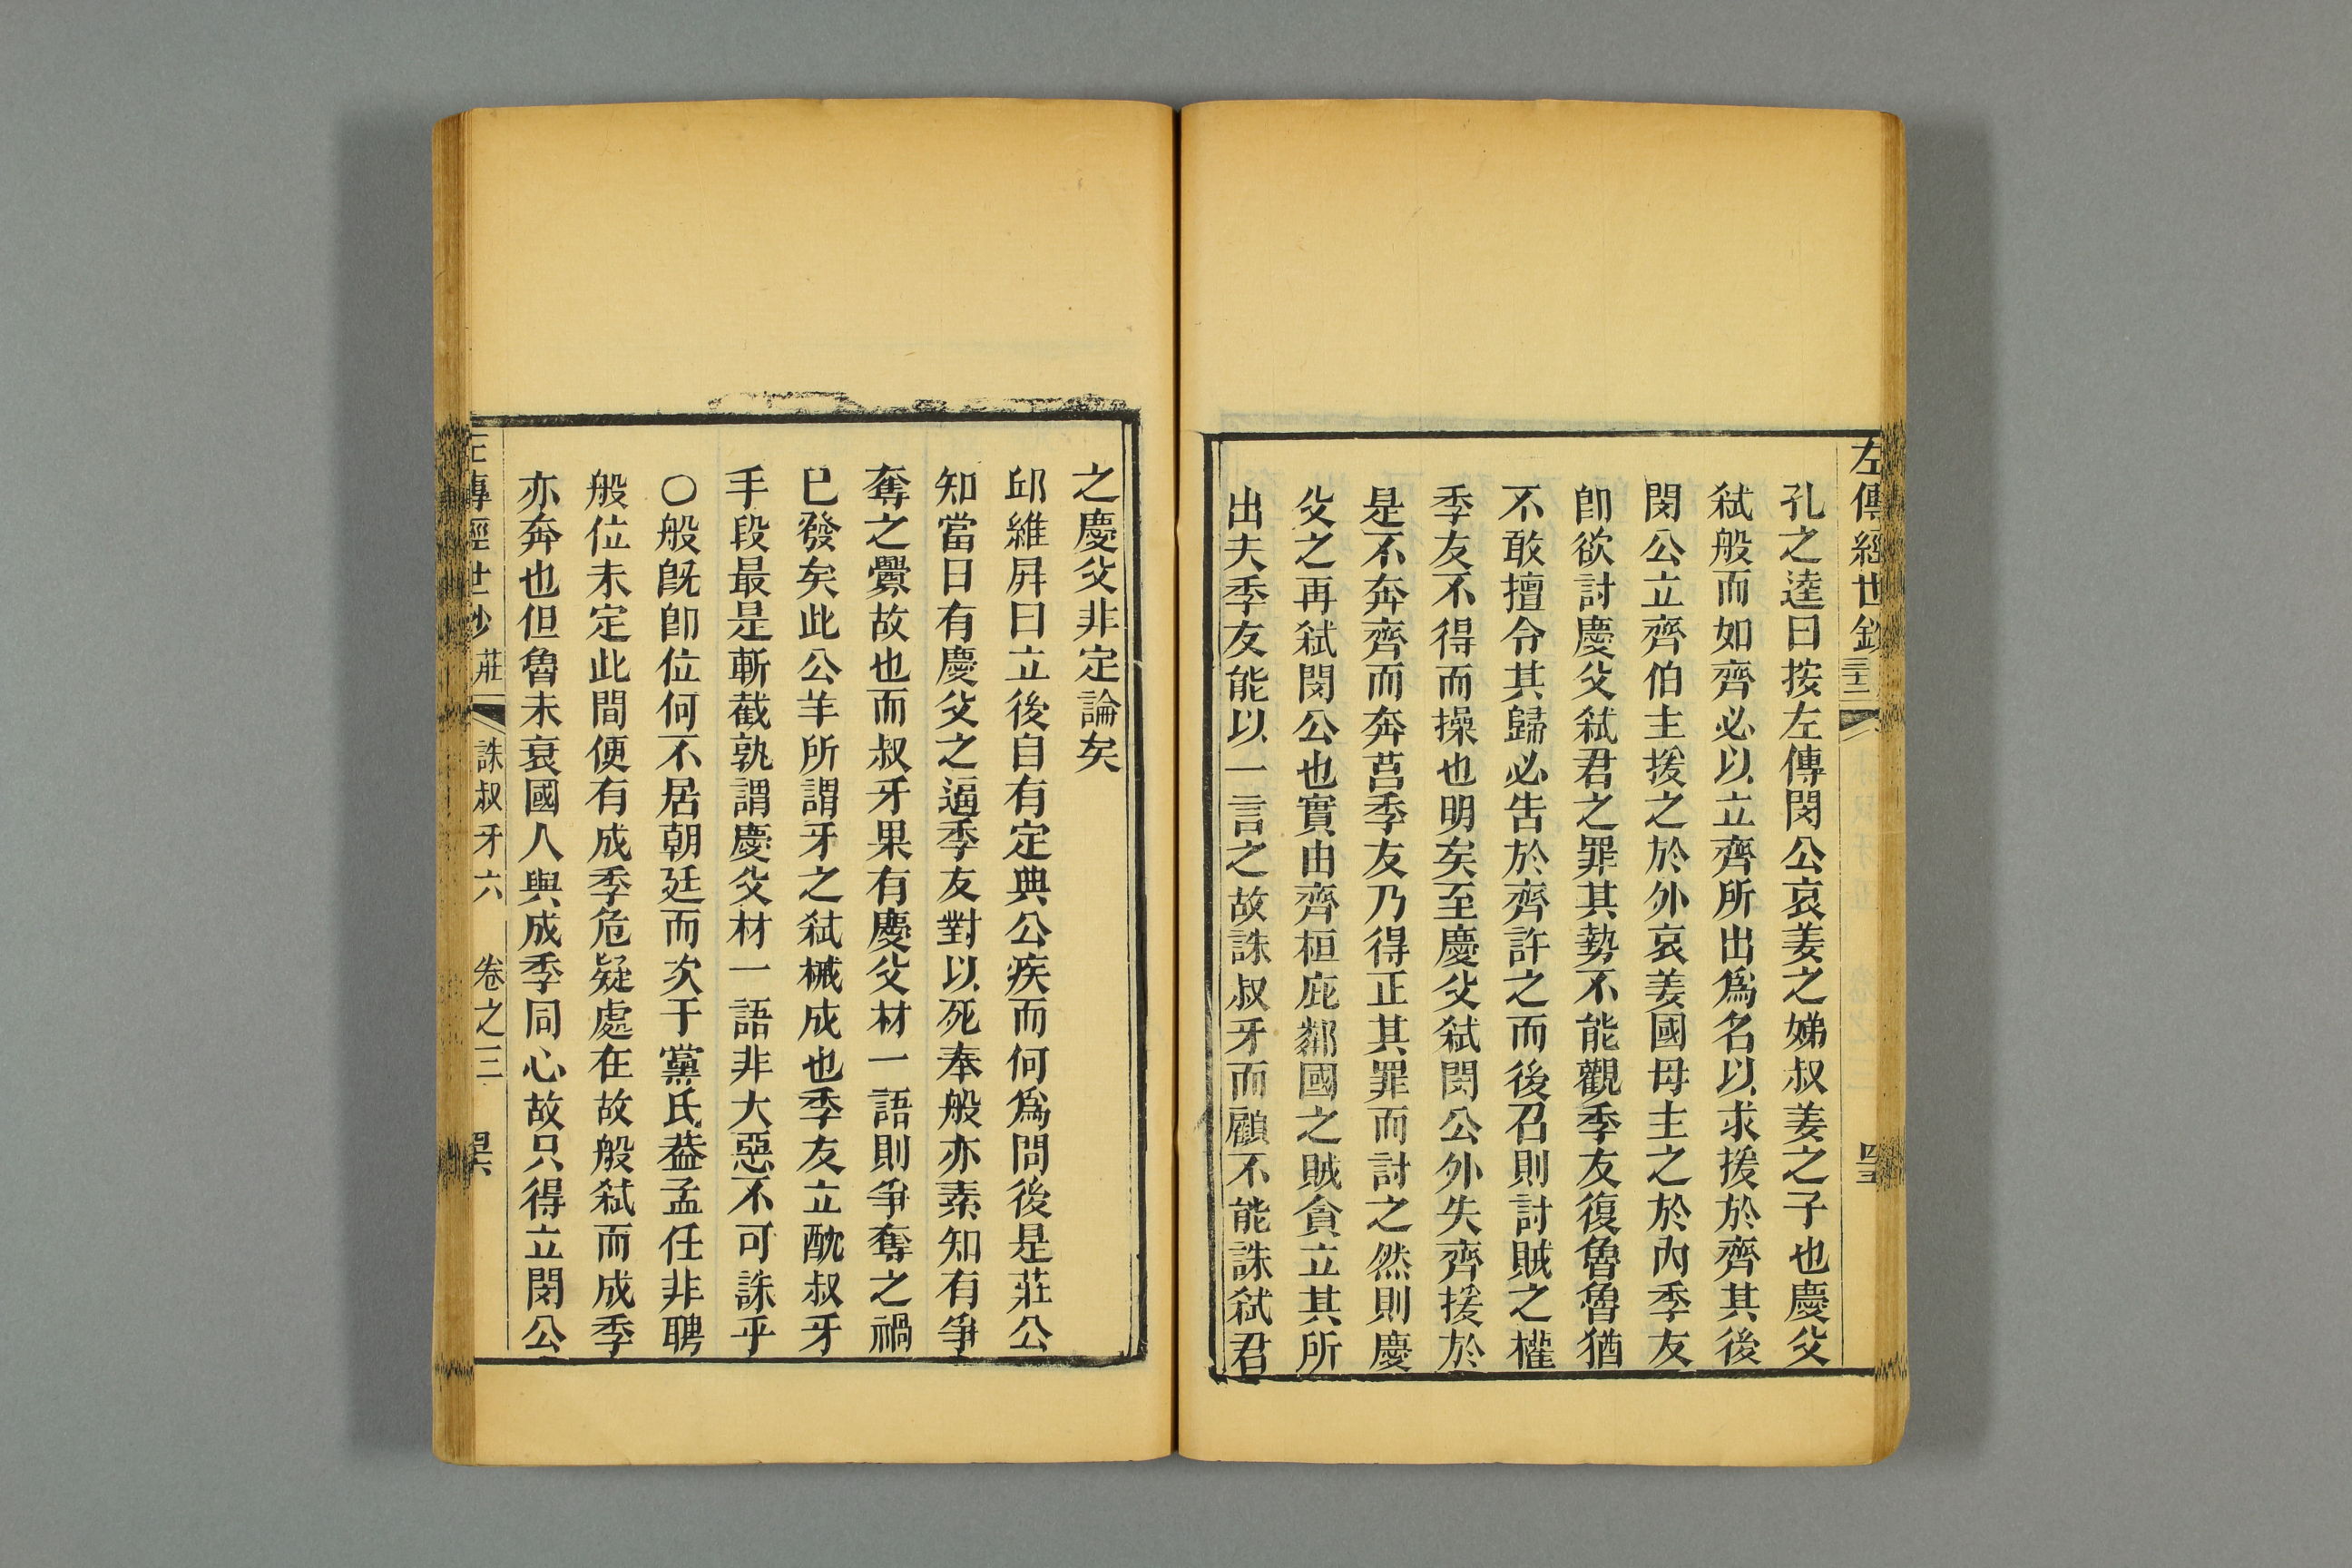 左傳經世鈔
孔之逵曰按左傳閔公哀姜之娣叔姜之子也慶父
弑般而如齊必以立齊所出爲名以求援於齊其後
閔公立齊伯主援之於外哀姜國母主之於內季友
卽欲討慶父弑君之罪其勢不能觀季友復魯魯猶
不敢擅令其歸必告於齊許之而後召則討賊之權
季友不得而操也明矣至慶父弑閔公外失齊援於
是不奔齊而奔莒季友乃得正其罪而討之然則慶
父之再弑閔公也實由齊桓庇鄰國之賊貪立其所
出夫季友能以一言之故誅叔牙而顧不能誅弑君
之慶父非定論矣
邱維屛曰立後自有定典公疾而何爲問後是莊公
知當日有慶父之逼季友對以死奉般亦素知有爭
奪之釁故也而叔牙果有慶父材一語則爭奪之禍
已發矣此公羊所謂牙之弑械成也季友立酖叔牙
手段最是斬截孰謂慶父材一語非大惡不可誅乎
〇般旣卽位何不居朝廷而次于黨氏葢孟任非聘
般位未定此間便有成季危疑處在故般弑而成季
亦奔也但魯未衰國人與成季同心故只得立閔公
左傳經世鈔 莊 誅叔牙六 卷之三